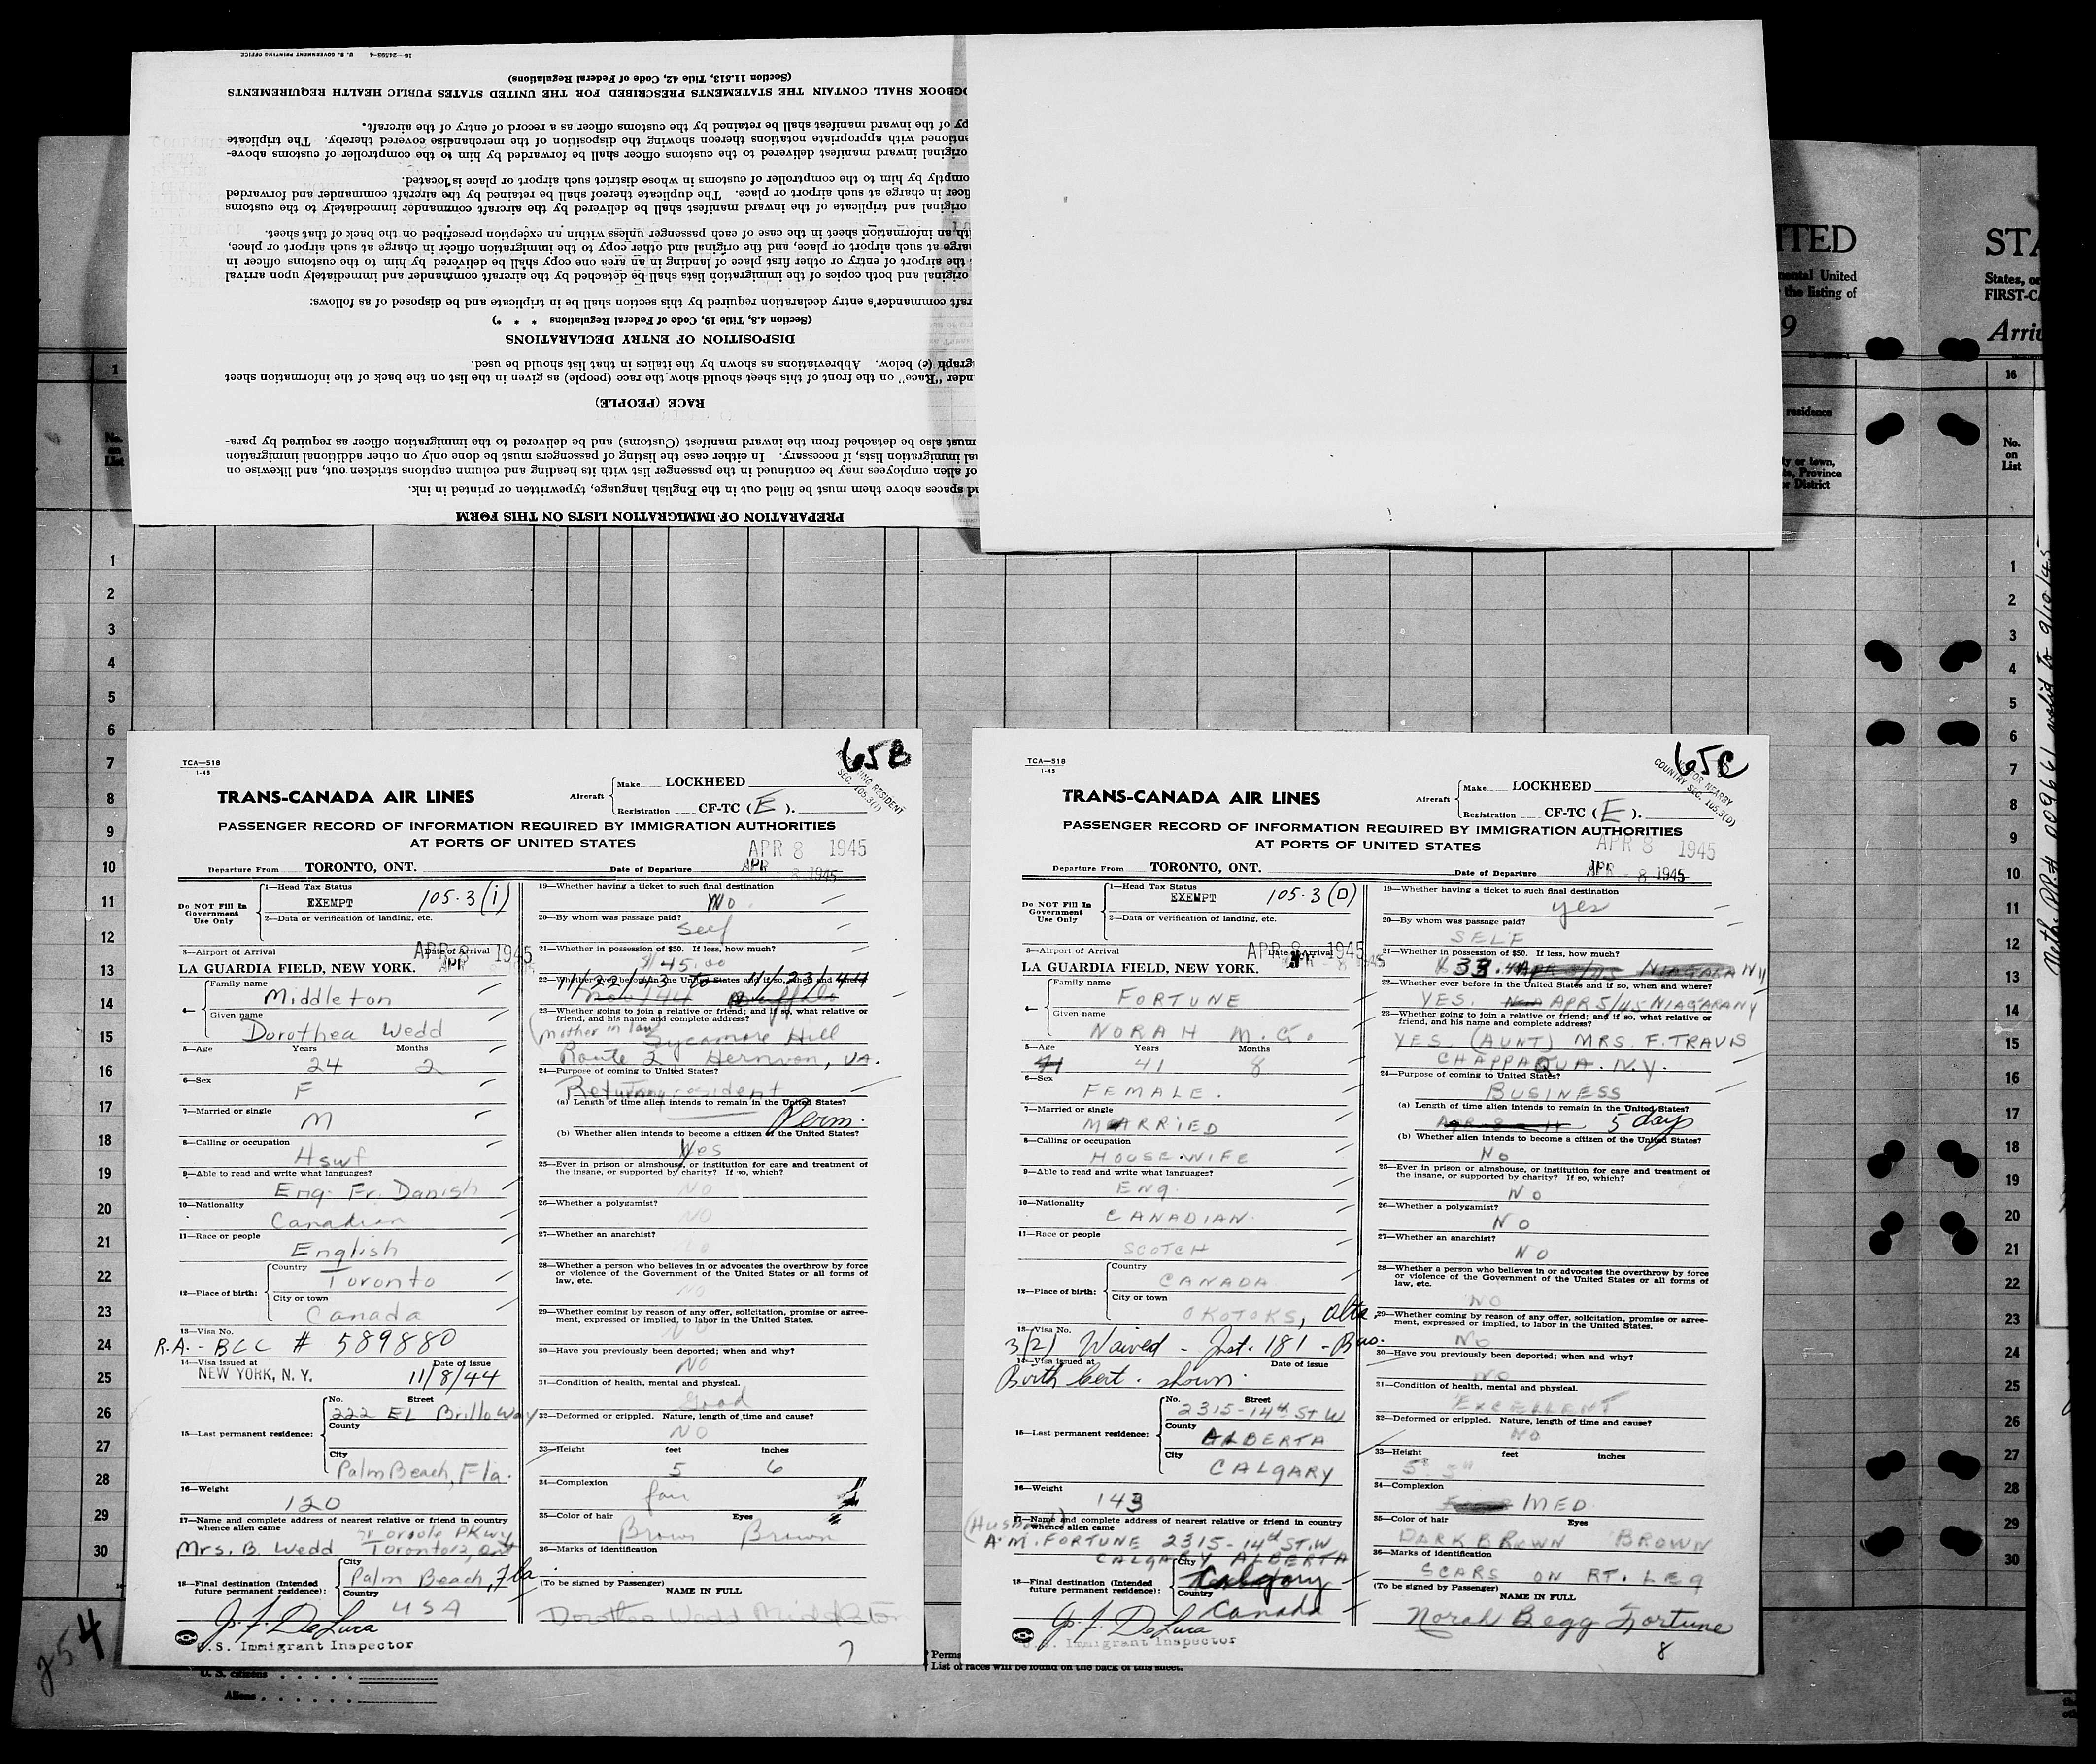 16—24598-4 U. S. GOVERNMENT PRINTING OFFICE
(Section 11.513, Title 42, Code of Federal Regulations)
SHALL CONTAIN THE STATEMENTS PRESCRIBED FOR THE UNITED STATES PUBLIC HEALTH REQUIREMENTS
of the inward manifest shall be retained by the customs officer as a record of entry of the aircraft.
with appropriate notations thereon showing the disposition of the merchandise covered thereby. The triplicate
original inward manifest delivered to the customs officer shall be forwarded by him to the comptroller of customs above-
by him to the comptroller of customs in whose district such airport or place is located.
in charge at such airport or place. The duplicate thereof shall be retained by the aircraft commander and forwarded
original and triplicate of the inward manifest shall be delivered by the aircraft commander immediately to the customs
an information sheet in the case of each passenger unless within an exception prescribed on the back of that sheet.
at such airport or place, and the original and other copy to the immigration officer in charge at such airport or place,
the airport of entry or other first place of landing in an area one copy shall be delivered by him to the customs officer in
original and both copies of the immigration lists shall be detached by the aircraft commander and immediately upon arrival
commander's entry declaration required by this section shall be in triplicate and be disposed of as follows:
(Section 4.8, Title 19, Code of Federal Regulations * * *)
DISPOSITION OF ENTRY DECLARATIONS
(c) below. Abbreviations as shown by the italics in that list should be used.
"Race" on the front of this sheet should show the race (people) as given in the list on the back of the information sheet
RACE (PEOPLE)
must also be detached from the inward manifest (Customs) and be delivered to the immigration officer as required by para-
immigration lists, if necessary. In either case the listing of passengers must be done only on other additional immigration
of alien employees may be continued in the passenger list with its heading and column captions stricken out, and likewise on
spaces above them must be filled out in the English language, typewritten or printed in ink.
PREPARATION OF IMMIGRATION LISTS ON THIS FORM
65B
TCA—518
1-45
TRANS-CANADA AIR LINES
Aircraft
Make LOCKHEED
Registration CF-TC (E).
RESIDENT
SEC. 105.3(i)
PASSENGER RECORD OF INFORMATION REQUIRED BY IMMIGRATION AUTHORITIES
AT PORTS OF UNITED STATES
APR 8 1945
Departure From TORONTO, ONT. Date of Departure APR - 8 1945
Do NOT Fill In Government Use Only
1—Head Tax Status
EXEMPT 105.3(i)
2—Data or verification of landing, etc.
3—Airport of Arrival Date of Arrival
APR 8 1945
LA GUARDIA FIELD, NEW YORK.
4— Family name
Middleton
Given name
Dorothea Wedd
5—Age Years Months
24 2
6—Sex
F
7—Married or single
M
8—Calling or occupation
Hswf
9—Able to read and write what languages?
Eng. Fr. Danish
10—Nationality
Canadian
11—Race or people
English
12—Place of birth: Country
Toronto
City or town
Canada
13—Visa No.
R.A. - BCC # 589880
14—Visa issued at Date of issue
NEW YORK, N. Y. 11/8/44
15—Last permanent residence: No. Street
222 El Brillo Way
County
City
Palm Beach, Fla.
16—Weight
120
17—Name and complete address of nearest relative or friend in country
whence alien came
Oriole PKwy
Mrs. B. Wedd Toronto 12, Ont
18—Final destination (Intended future permanent residence): City
Palm Beach, Fla.
Country
USA
J. F. DeLuca
U.S. Immigrant Inspector
19—Whether having a ticket to such final destination
No
20—By whom was passage paid?
Self
21—Whether in possession of $50. If less, how much?
$45.00
22—Whether ever before in the United States and if so, when and where?
11/22/43 to 11/23/44
Nov/44 Buffalo
23—Whether going to join a relative or friend; and if so, what relative or
friend, and his name and complete address?
(Mother in law Sycamore Hill
Route 2 Hernvon, VA.
24—Purpose of coming to United States?
Returning resident
(a) Length of time alien intends to remain in the United States?
Perm.
(b) Whether alien intends to become a citizen of the United States?
Yes
25—Ever in prison or almshouse, or institution for care and treatment of
the insane, or supported by charity? If so, which?
NO
26—Whether a polygamist?
NO
27—Whether an anarchist?
No
28—Whether a person who believes in or advocates the overthrow by force
or violence of the Government of the United States or all forms of
law, etc.
NO
29—Whether coming by reason of any offer, solicitation, promise or agree-
ment, expressed or implied, to labor in the United States.
NO
30—Have you previously been deported; when and why?
NO
31—Condition of health, mental and physical.
Good
32—Deformed or crippled. Nature, length of time and cause?
NO
33—Height feet inches
5 6
34—Complexion
fair
35—Color of hair Eyes
Brown Brown
36—Marks of identification
(To be signed by Passenger) NAME IN FULL
Dorothea Wedd Middleton
7
65C
TCA—518
1-45
TRANS-CANADA AIR LINES
Aircraft
Make LOCKHEED
Registration CF-TC (E).
COUNTRY FOR NEARBY
SEC. 105.3(D)
PASSENGER RECORD OF INFORMATION REQUIRED BY IMMIGRATION AUTHORITIES
AT PORTS OF UNITED STATES
APR 8 1945
Departure From TORONTO, ONT. Date of Departure APR - 8 1945
Do NOT Fill In Government Use Only
1—Head Tax Status
EXEMPT 105.3(D)
2—Data or verification of landing, etc.
3—Airport of Arrival Date of Arrival
APR 8 1945
LA GUARDIA FIELD, NEW YORK.
4— Family name
FORTUNE
Given name
NORAH M. G.
5—Age Years Months
41 41 8
6—Sex
FEMALE.
7—Married or single
MARRIED
8—Calling or occupation
HOUSEWIFE
9—Able to read and write what languages?
ENG.
10—Nationality
CANADIAN.
11—Race or people
SCOTCH
12—Place of birth: Country
CANADA
City or town
OKOTOKS, Alta.
13—Visa No.
3(2) Waived - Inst. 181 - Bus.
14—Visa issued at Date of issue
Birth Cert. shown.
15—Last permanent residence: No. Street
2315-14th St W
County
ALBERTA
City
CALGARY
16—Weight
143
17—Name and complete address of nearest relative or friend in country
whence alien came
(Husband)
A.M. FORTUNE 2315-14th ST.W
CALGARY ALBERTA
18—Final destination (Intended future permanent residence): City
Calgary
Country
Canada
J. F. DeLuca
U.S. Immigrant Inspector
19—Whether having a ticket to such final destination
yes
20—By whom was passage paid?
SELF
21—Whether in possession of $50. If less, how much?
$33. NIAGARA NY
22—Whether ever before in the United States and if so, when and where?
YES. APR 5/45 NIAGARA NY
23—Whether going to join a relative or friend; and if so, what relative or
friend, and his name and complete address?
YES. (AUNT) MRS. F. TRAVIS
CHAPPAQUA. N.Y.
24—Purpose of coming to United States?
BUSINESS
(a) Length of time alien intends to remain in the United States?
5 days
(b) Whether alien intends to become a citizen of the United States?
No
25—Ever in prison or almshouse, or institution for care and treatment of
the insane, or supported by charity? If so, which?
NO
26—Whether a polygamist?
NO
27—Whether an anarchist?
NO
28—Whether a person who believes in or advocates the overthrow by force
or violence of the Government of the United States or all forms of
law, etc.
NO
29—Whether coming by reason of any offer, solicitation, promise or agree-
ment, expressed or implied, to labor in the United States.
No
30—Have you previously been deported; when and why?
NO
31—Condition of health, mental and physical.
EXCELLENT
32—Deformed or crippled. Nature, length of time and cause?
NO
33—Height feet inches
34—Complexion
MED.
35—Color of hair Eyes
DARK BROWN BROWN
36—Marks of identification
SCARS ON RT. LEG
(To be signed by Passenger) NAME IN FULL
Norah Begg Fortune
8
U. S. citizens
Aliens
List of races will be found on the back of this sheet.
No. on List
1
2
3
4
5
6
7
8
9
10
11
12
13
14
15
16
17
18
19
20
21
22
23
24
25
26
27
28
29
30
ental United
the listing of
residence
or town,
Province
or District
STA
States, or
FIRST-C
Arri
16
No. on List
1
2
3
4
5
6
7
8
9
10
11
12
13
14
15
16
17
18
19
20
21
22
23
24
25
26
27
28
29
30
valid to 9/10/45